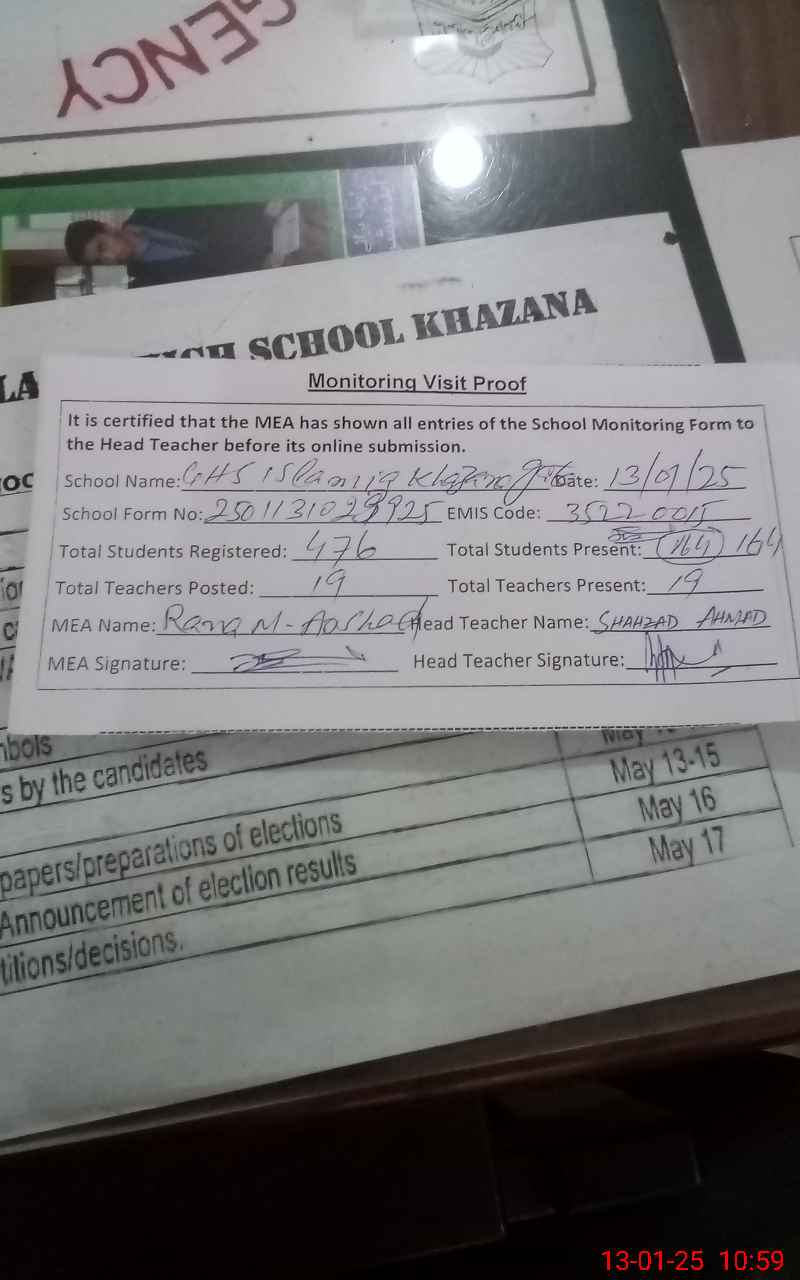 GENCY
HIGH SCHOOL KHAZANA
LA
Monitoring Visit Proof
It is certified that the MEA has shown all entries of the School Monitoring Form to
the Head Teacher before its online submission.
School Name: GHS Islamia Khazana Date: 13/01/25
School Form No: EMIS Code: 3522 0015
Total Students Registered: 476 Total Students Present: (164) 164
Total Teachers Posted: 19 Total Teachers Present: 19
MEA Name: Rana M. Arshad Head Teacher Name: SHAHZAD AHMAD
MEA Signature: Head Teacher Signature:
nbols
s by the candidates May 13-15
papers/preparations of elections May 16
Announcement of election results May 17
titions/decisions.
13-01-25 10:59